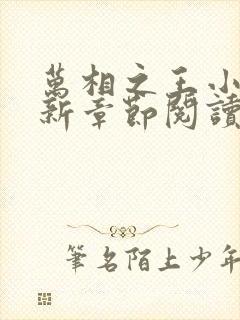 萬相之王小
新章節閱讀
筆名陌上少年